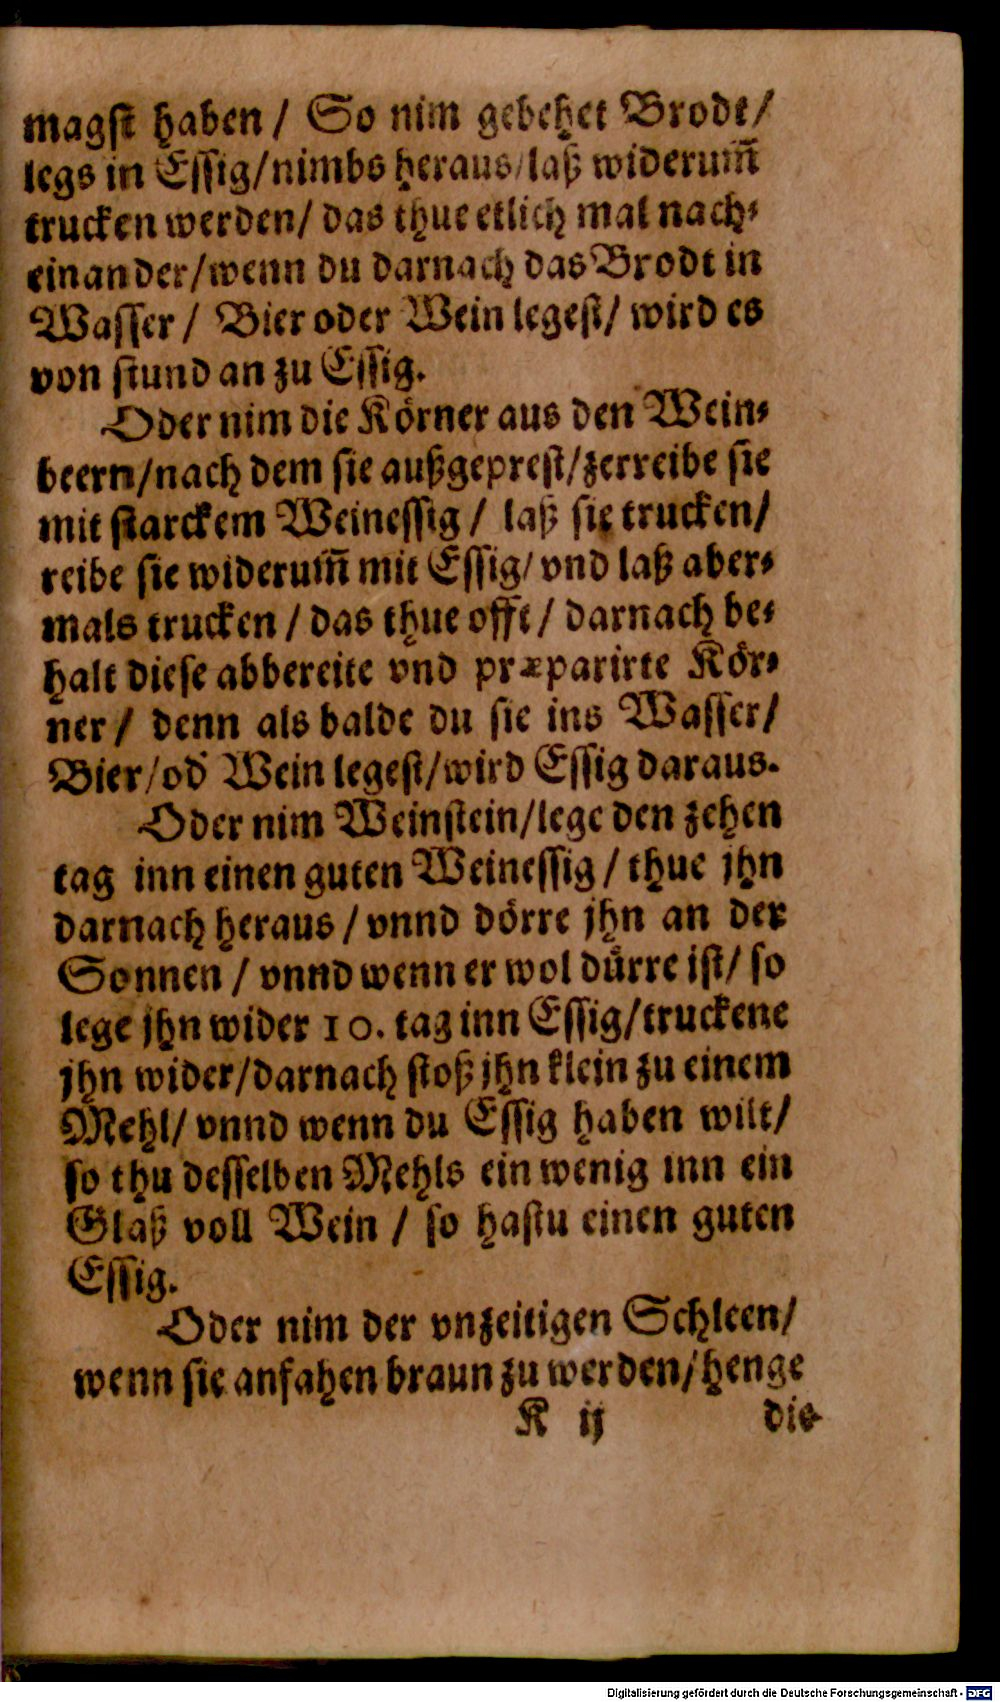 magst haben / So nim gebehet Brodt /
legs in Essig / nimbs heraus / laß widerum̃
trucken werden / das thue etlich mal nach⸗
einander / wenn du darnach das Brodt in
Wasser / Bier oder Wein legest / wird es
von stund an zu Essig.
Oder nim die Körner aus den Wein⸗
beern / nach dem sie außgeprest / zerreibe sie
mit starckem Weinessig / laß sie trucken /
reibe sie widerum̃ mit Essig / vnd laß aber⸗
mals trucken / das thue offt / darnach be⸗
halt diese abbereite vnd præparirte Kör⸗
ner / denn als balde du sie ins Wasser /
Bier / od' Wein legest / wird Essig daraus.
Oder nim Weinstein / lege den zehen
tag inn einen guten Weinessig / thue jhn
darnach heraus / vnnd dörre jhn an der
Sonnen / vnnd wenn er wol dürre ist / so
lege jhn wider 10. tag inn Essig / truckene
jhn wider / darnach stoß jhn klein zu einem
Mehl / vnnd wenn du Essig haben wilt /
so thu desselben Mehls ein wenig inn ein
Glaß voll Wein / so hastu einen guten
Essig.
Oder nim der vnzeitigen Schleen /
wenn sie anfahen braun zu werden / henge
K ij die
Digitalisierung gefördert durch die Deutsche Forschungsgemeinschaft - DFG